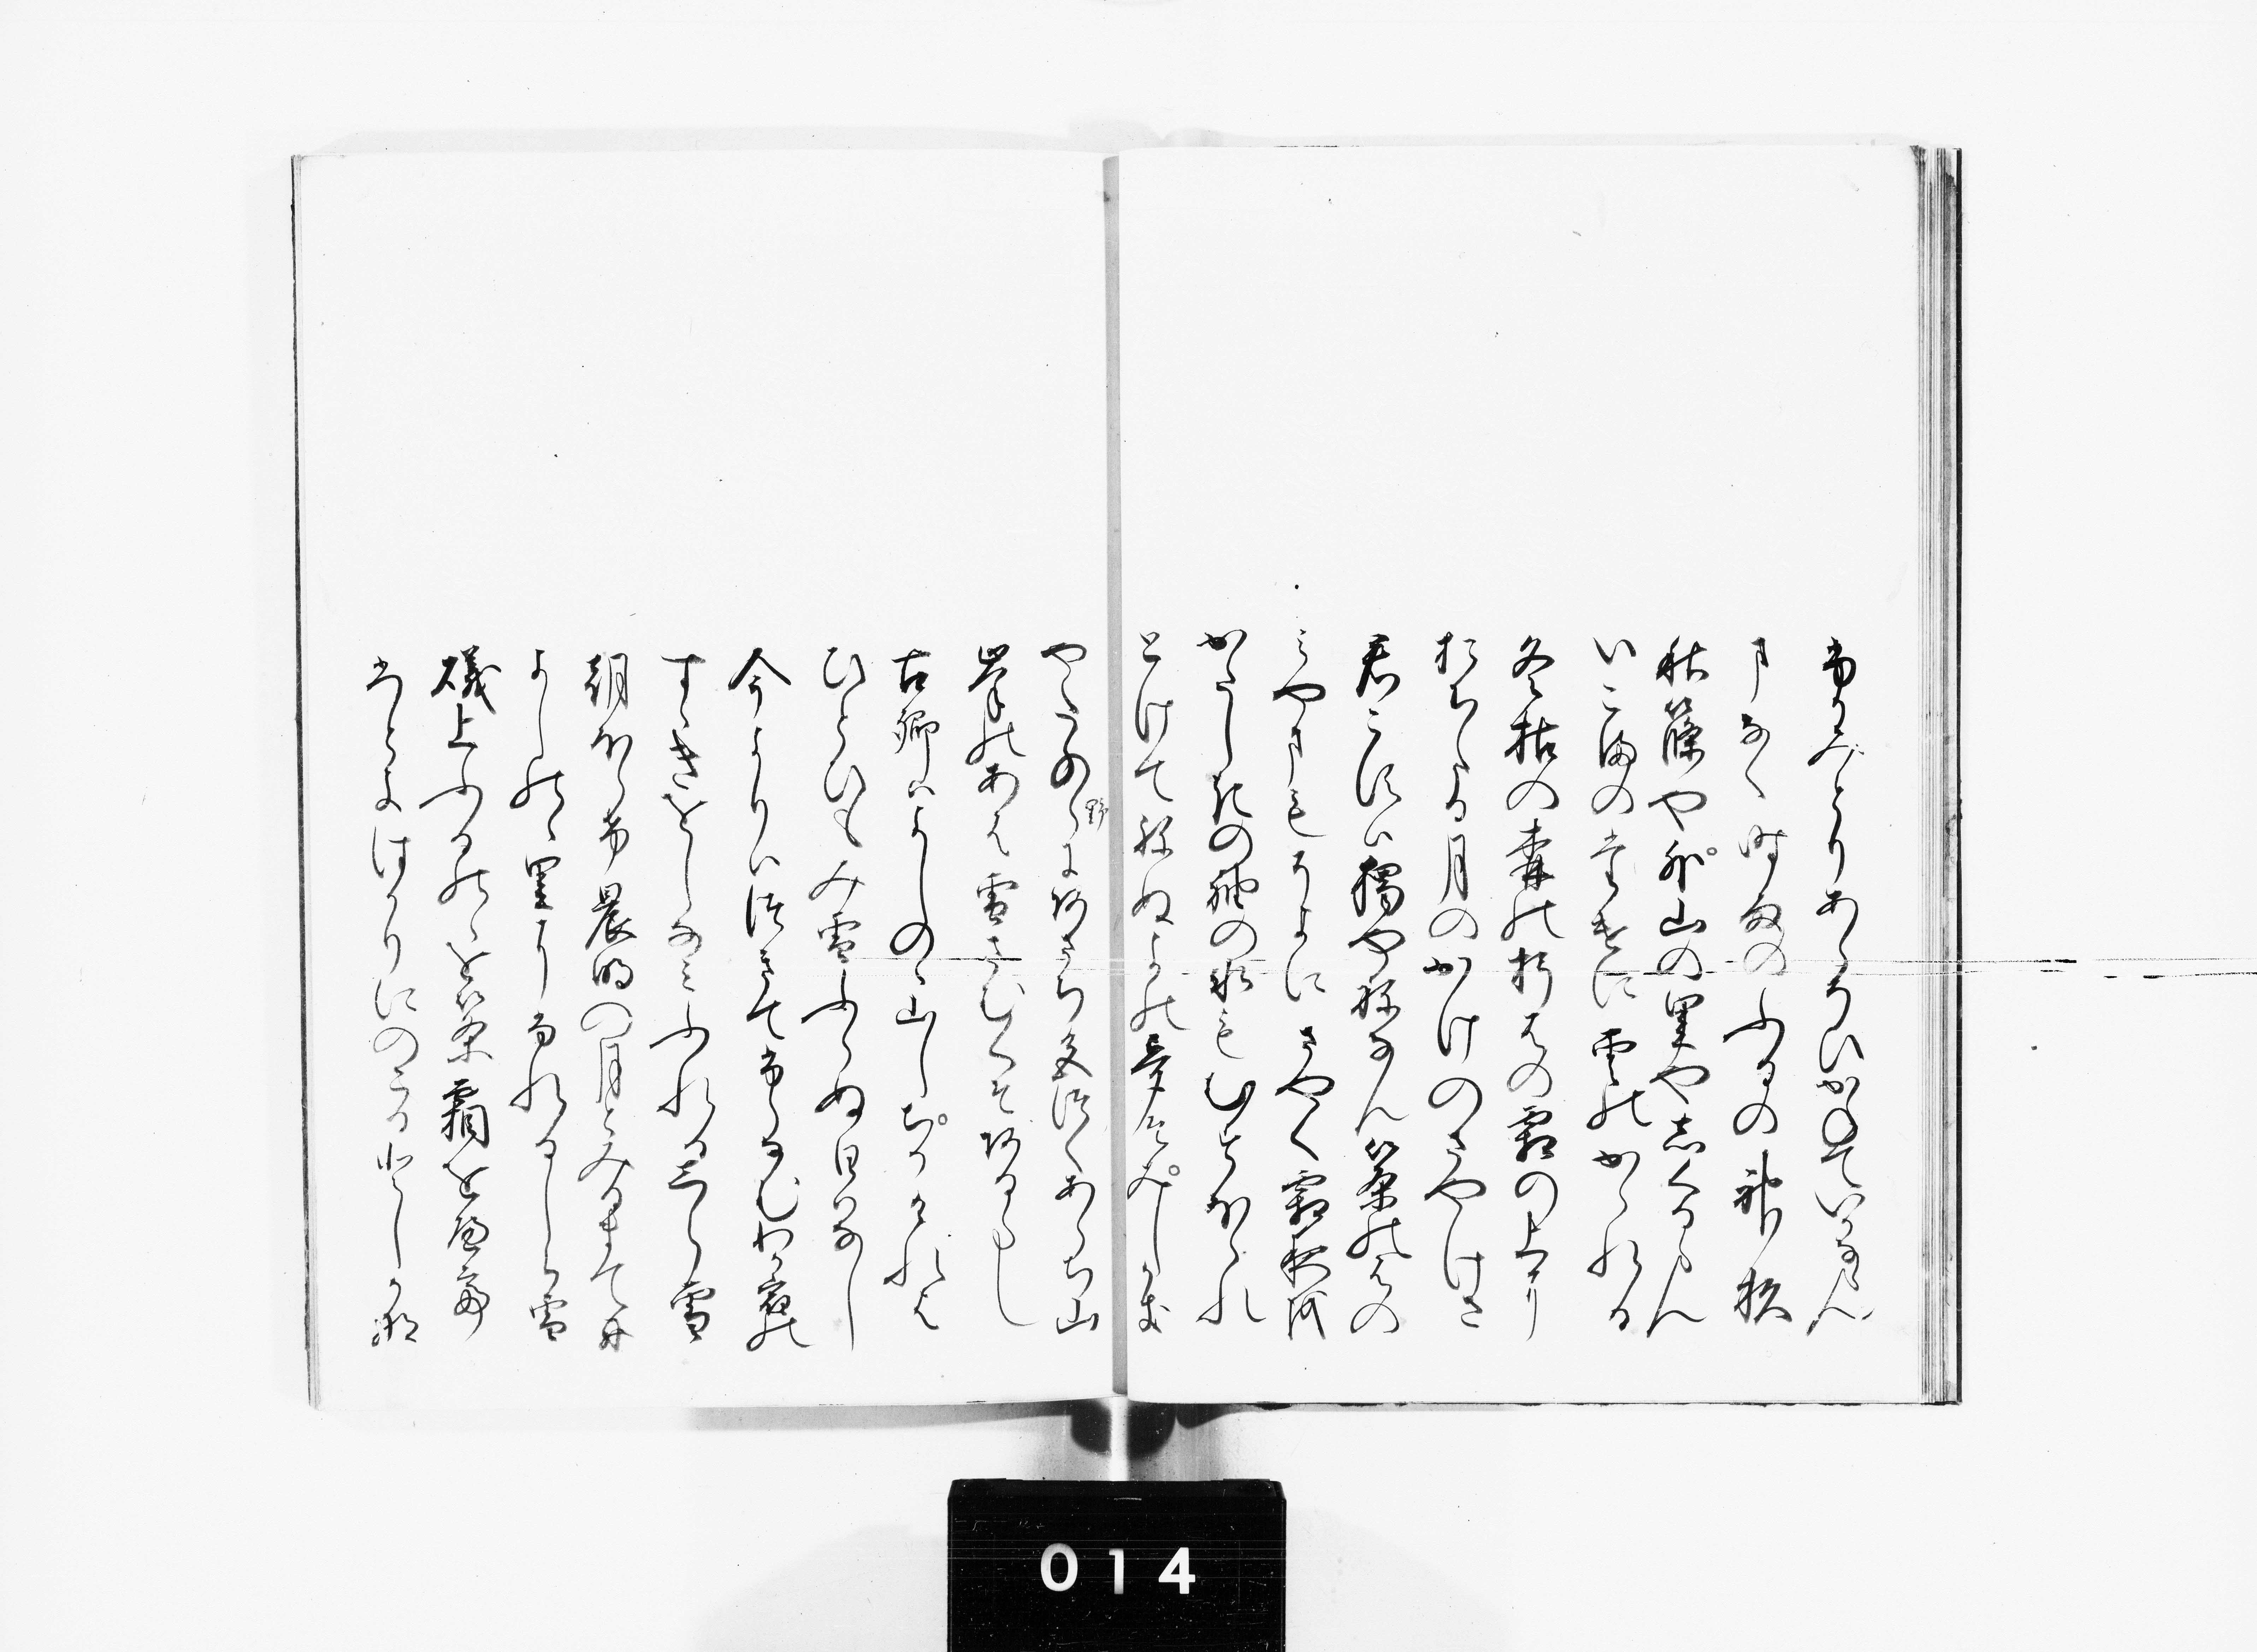 ふかみとりあらそひかねていかならん
まなく時雨のふるの神杉
秋篠や外山の里や志くるらん
いこまの嶽に雲のかゝれる
冬枯の森の朽はの霜の上に
おちたる月のかけのさやけさ
君こすは独やねなん篠のはの
みやまもそよにさやく霜夜を
かたしきの袖の氷もむすほゝれ
とけてねぬよの夢そみしかき
やたのゝ野にあさち色つくあらち山
峯のあは雪さむくそあるらし
古郷はよしのゝ山しちかけれは
ひとひもみ雪ふらぬ日はなし
今よりはつきてふらなむわか宿の
すゝきをしなみふれるしら雪
朝ほらけ晨明の月とみるまてに
よしのゝ里にふれるしら雪
礒上ふるのゝを篠霜をへて
ひとよはかりにのこるとしかな
014